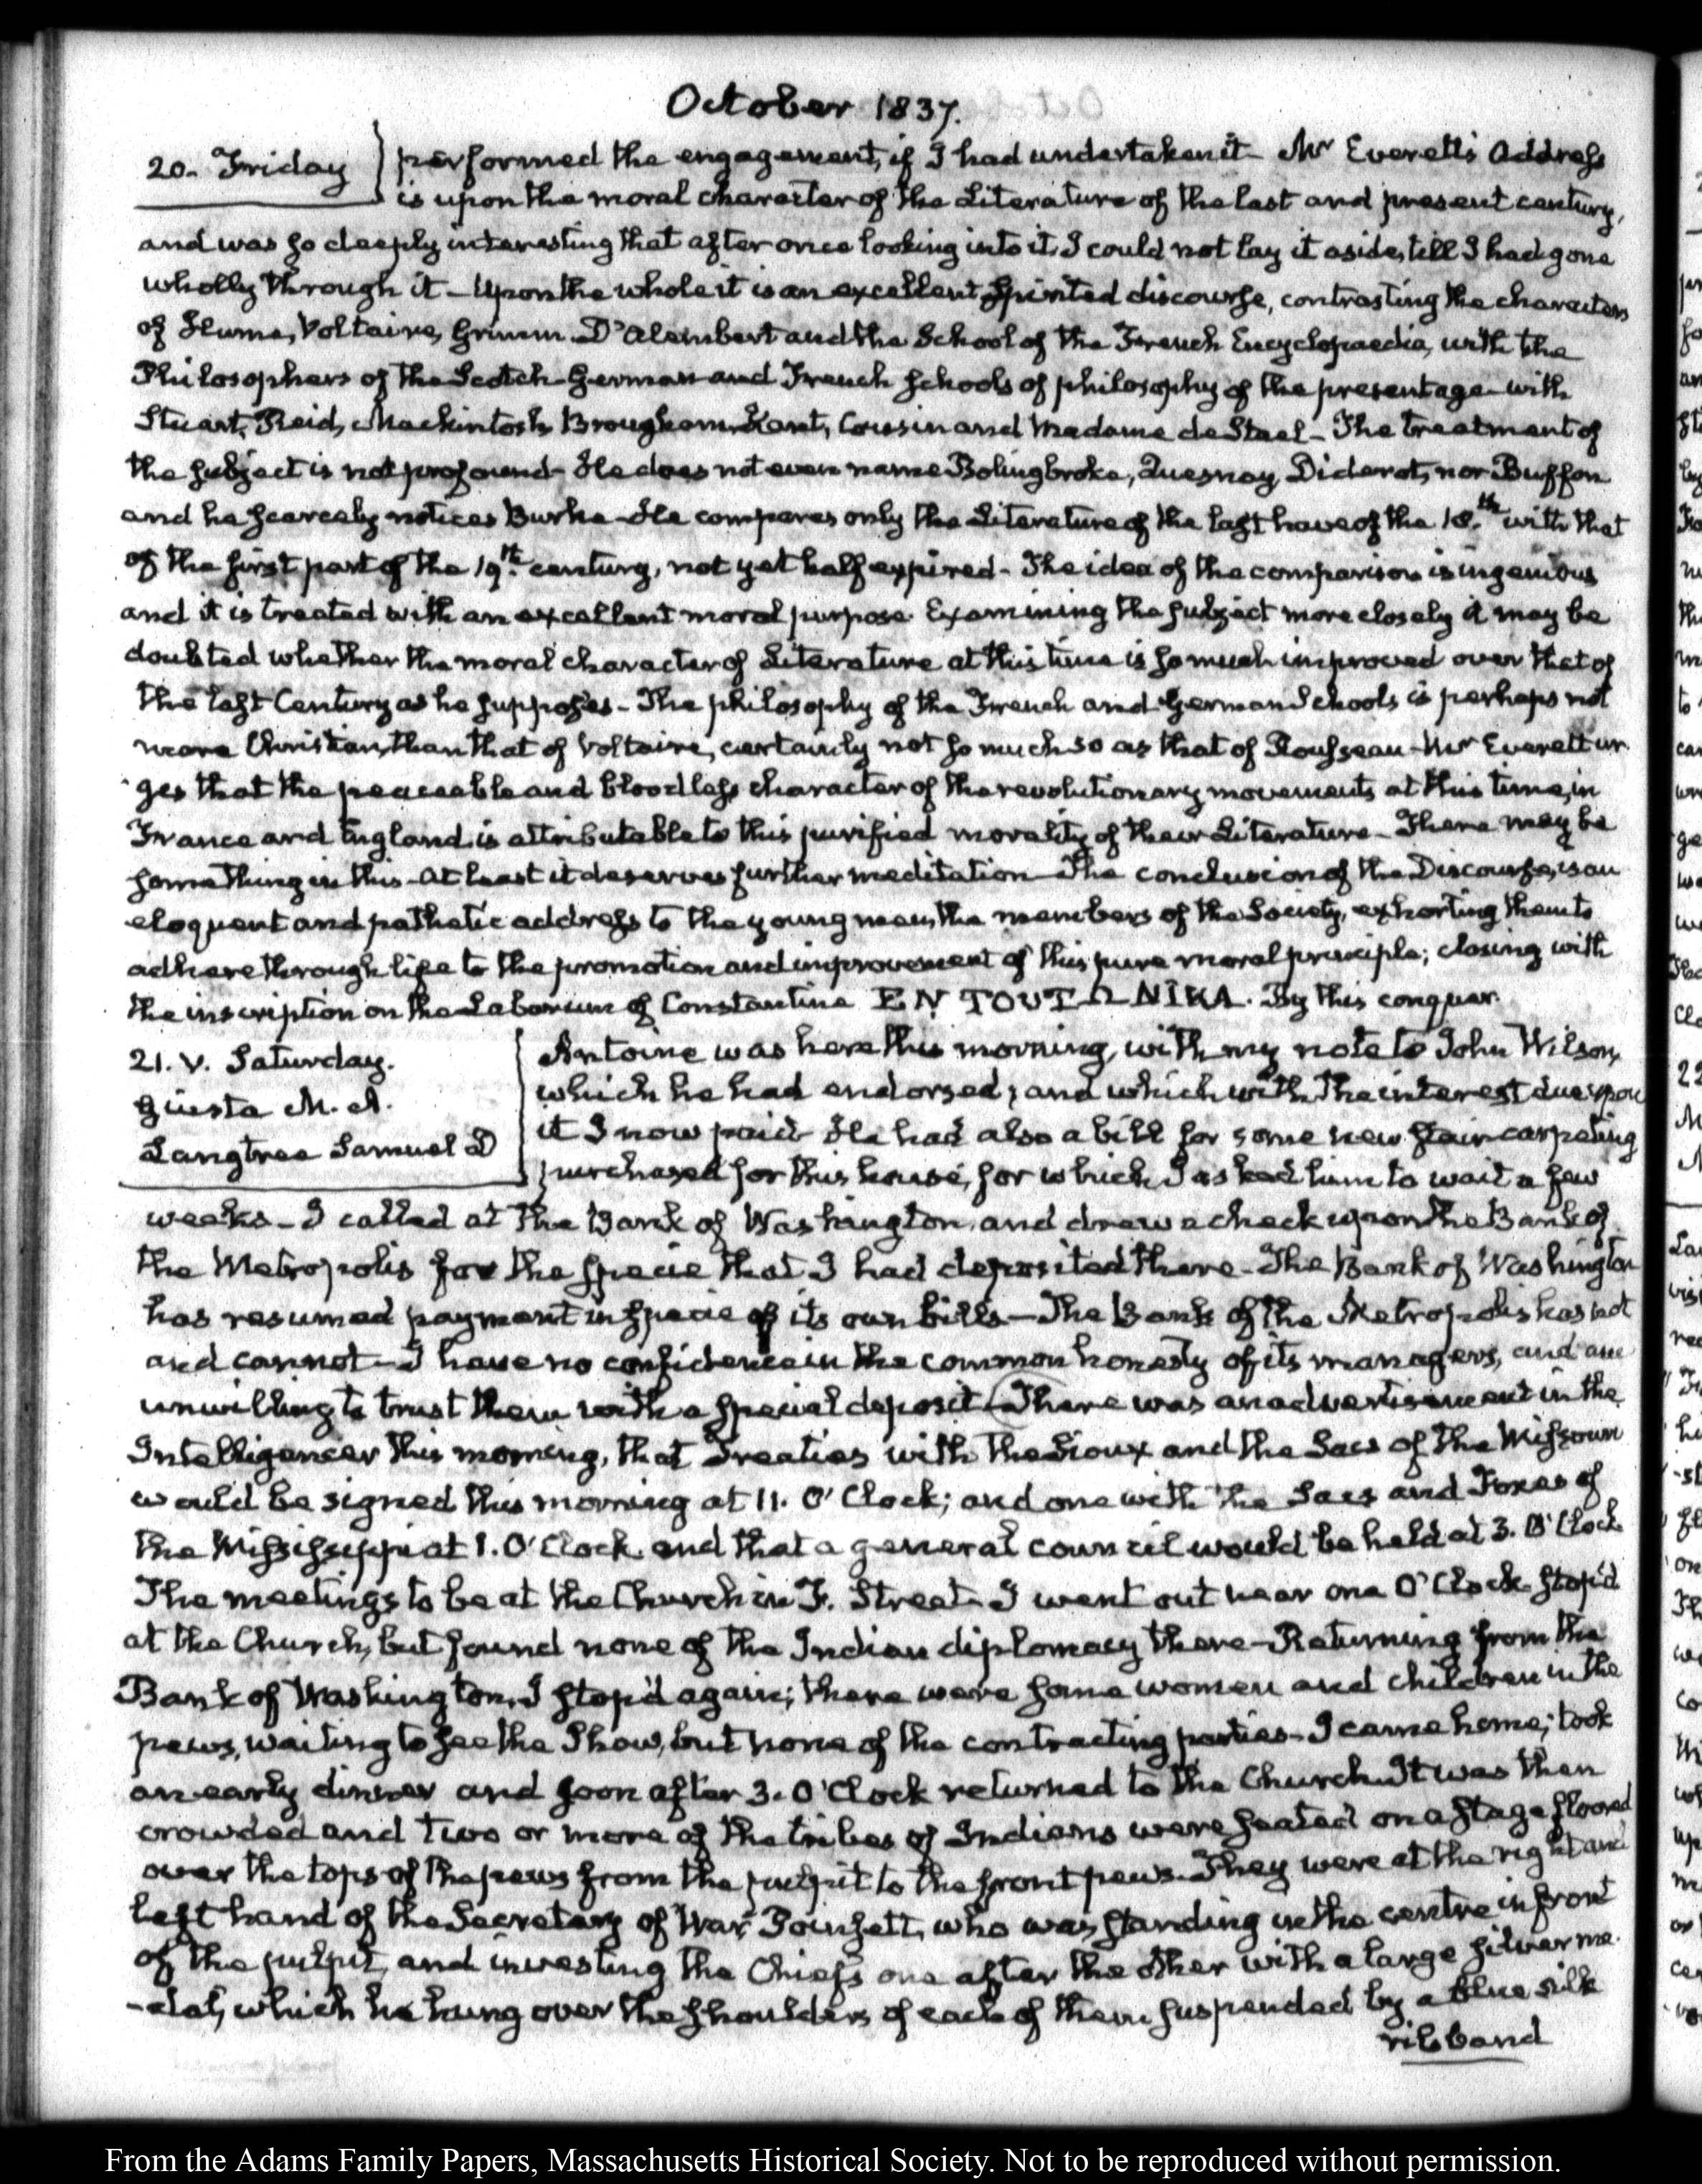 October 1837.
20. Friday
performed the engagement, if I had undertaken it — Mr Everett's Address
is upon the moral character of the Literature of the last and present century,
and was so deeply interesting that after once looking into it, I could not lay it aside, till I had gone
wholly through it — Upon the whole it is an excellent, spirited discourse, contrasting the characters
of Hume, Voltaire, Grimm D'Alembert and the School of the French Encyclopaedia, with the
Philosophers of the Scotch German and French schools of philosophy of the present age — with
Stuart, Reid, Mackintosh Brougham, Kant, Cousin and Madame de Stael — The treatment of
the subject is not profound — He does not even name Bolingbroke, Quesnay, Diderot, nor Buffon
and he scarcely notices Burke — He compares only the Literature of the last have of the 18.th with that
of the first part of the 19.th century, not yet half expired — The idea of the comparison is ingenious
and it is treated with an excellent moral purpose. Examining the subject more closely it may be
doubted whether the moral character of Literature at this time is so much improved over that of
the last Century as he supposes — The philosophy of the French and German Schools is perhaps not
more Christian, than that of Voltaire, certainly not so much so as that of Rousseau — Mr Everett ur-
ges that the peaceable and bloodless character of the revolutionary movements at this time, in
France and England is attributable to this purified morality of their Literature — There may be
something in this — at least it deserves further meditation — The conclusion of the Discourse, is an
eloquent and pathetic address to the young men, the members of the Society, exhorting them to
adhere through life to the promotion and improvement of this pure moral principle; closing with
the inscription on the Labarum of Constantine EN TOUTΩ NIKA. By this conquer.
21. V. Saturday.
Giusta M. A.
Langtree Samuel D
Antoine was here this morning, with my note to John Wilson,
which he had endorsed; and which with the interest due upon
it I now paid — He had also a bill for some new stair carpeting
purchased for this house, for which I asked him to wait a few
weeks — I called at the Bank of Washington, and drew a check upon the Bank of
the Metropolis for the specie that I had deposited there — The Bank of Washington
has resumed payment in specie of its own bills — The Bank of the Metropolis has not
and cannot — I have no confidence in the common honesty of its managers, and am
unwilling to trust them with a special deposit — There was an advertisement in the
Intelligencer this morning, that Treaties with the Sioux and the Sacs of the Missouri
would be signed this morning at 11. O'Clock; and one with the Sacs and Foxes of
the Mississippi at 1. O'Clock and that a general council would be held at 3. O'Clock
The meetings to be at the Church in F. Street — I went out near one O'Clock — stop'd
at the Church, but found none of the Indian diplomacy there — Returning from the
Bank of Washington, I stop'd again; there were some women and children in the
pews, waiting to see the Show, but none of the contracting parties — I came home; took
an early dinner and soon after 3. O'Clock returned to the Church. It was then
crowded and two or more of the tribes of Indians were seated on a stage floored
over the tops of the pews from the pulpit to the front pews. They were at the right and
left hand of the Secretary of War, Poinsett, who was standing in the centre in front
of the pulpit, and investing the Chiefs one after the other with a large silver me-
-dal, which he hung over the shoulders of each of them suspended by a blue silk
ribband
From the Adams Family Papers, Massachusetts Historical Society. Not to be reproduced without permission.